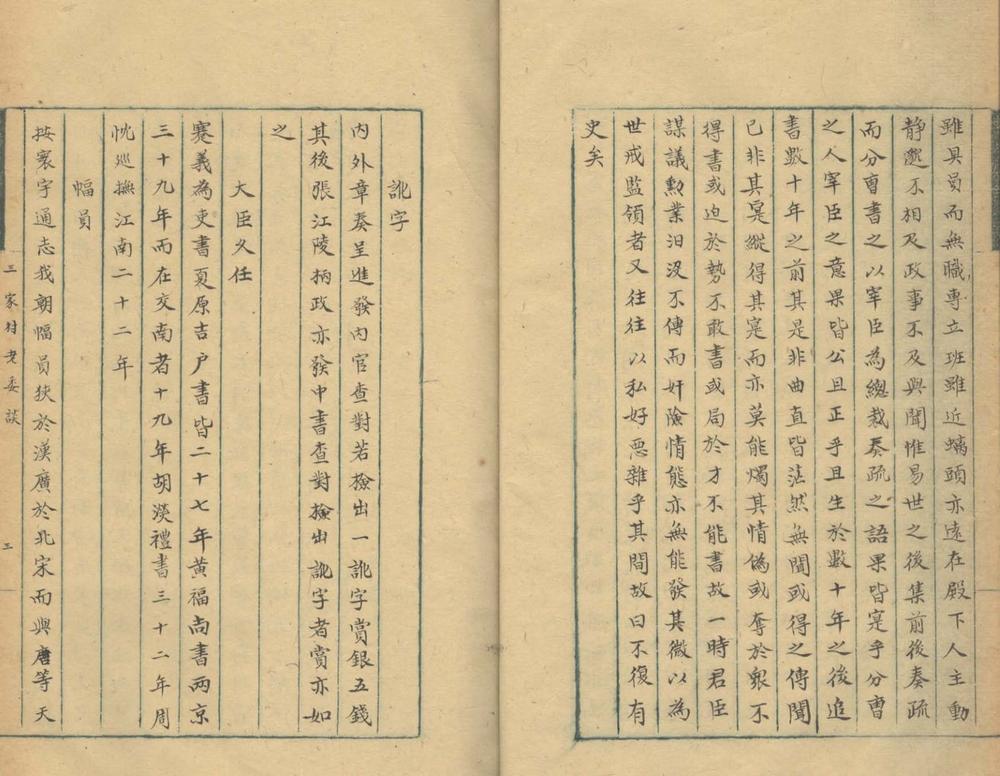 雖具員而無職專立班雖近螭頭亦遠在殿下人主動
靜邈不相及政事不及與聞惟易世之後集前後奏疏
而分曹書之以宰臣為總裁奏疏之語果皆寔乎分曹
之人宰臣之意果皆公且正乎且生於數十年之後追
書數十年之前其是非曲直皆茫然無聞或得之傳聞
已非其寔縱得其寔而亦莫能燭其情偽或奪於衆不
得書或迫於勢不敢書或局於才不能書故一時君臣
謀議勲業汩没不傳而奸險情態亦無能發其微以為
世戒監領者又往往以私好惡雜乎其間故曰不復有
史矣
訛字
内外章奏呈進發内官查對若撿出一訛字賞銀五錢
其後張江陵柄政亦發中書查對撿出訛字者賞亦如
之
大臣久任
蹇義為吏書夏原吉户書皆二十七年黄福尚書兩京
三十九年而在交南者十九年胡濙禮書三十二年周
忱巡撫江南二十二年
幅員
按寰宇通志我朝幅員狹於漢廣於北宋而與唐等天
三家村老委談
三